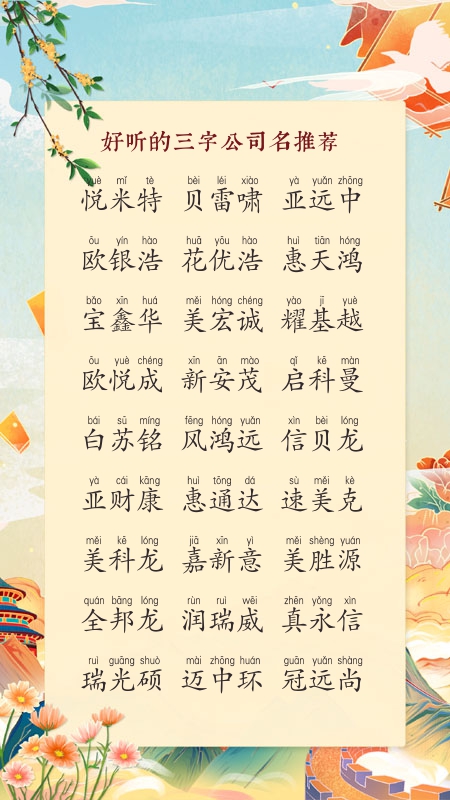 好听的三字公司名推荐
yuè mǐ tè bèi léi xiào yà yuǎn zhōng
悦米特 贝雷啸 亚远中
ōu yín hào huā yōu hào huì tiān hóng
欧银浩 花优浩 惠天鸿
bǎo xīn huá měi hóng chéng yào jī yuè
宝鑫华 美宏诚 耀基越
ōu yuè chéng xīn ān mào qǐ kē màn
欧悦成 新安茂 启科曼
bái sū míng fēng hóng yuǎn xìn bèi lóng
白苏铭 风鸿远 信贝龙
yà cái kāng huì tōng dá sù měi kè
亚财康 惠通达 速美克
měi kē lóng jiā xīn yì měi shèng yuán
美科龙 嘉新意 美胜源
quán bāng lóng rùn ruì wēi zhēn yǒng xìn
全邦龙 润瑞威 真永信
ruì guāng shuò mài zhōng huán guān yuǎn shàng
瑞光硕 迈中环 冠远尚